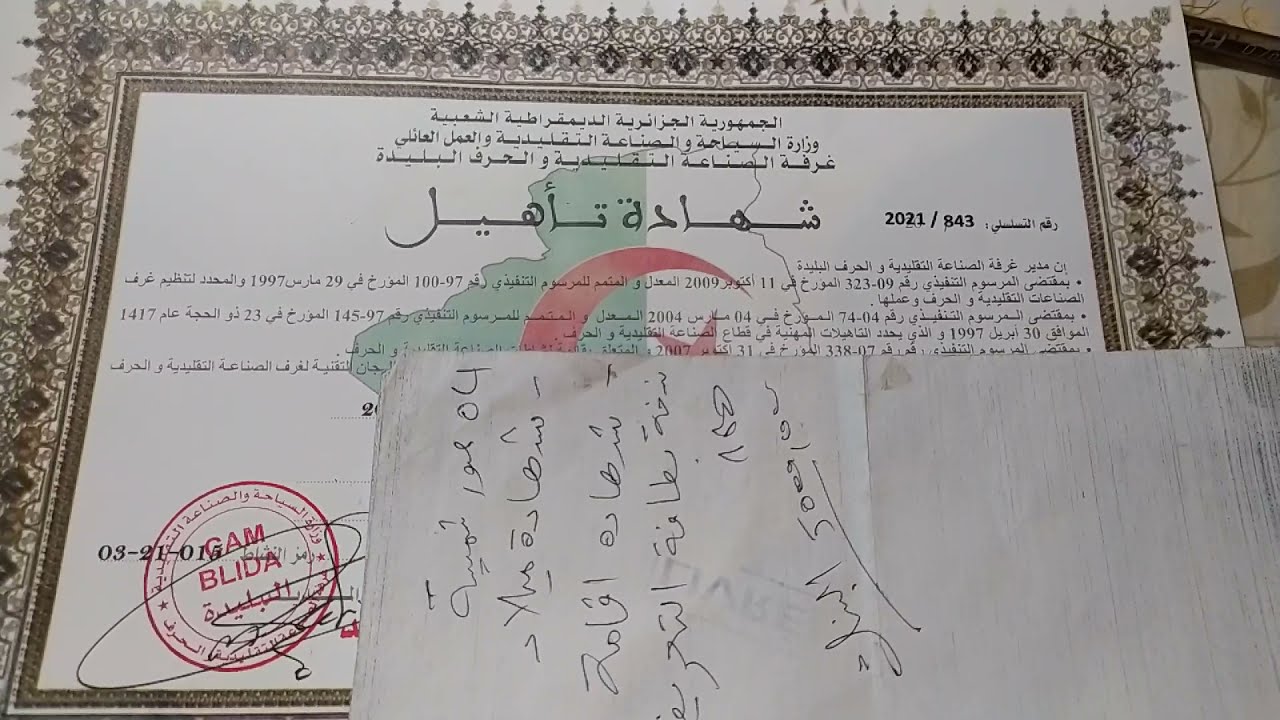 الجمهورية الجزائرية الديمقراطية الشعبية
وزارة السياحة والصناعة التقليدية والعمل العائلي
غرفة الصناعة التقليدية و الحرف البليدة
شهادة تأهيل
رقم التسلسلي: 843 / 2021
إن مدير غرفة الصناعة التقليدية و الحرف البليدة
• بمقتضى المرسوم التنفيذي رقم 09-323 المؤرخ في 11 أكتوبر 2009 المعدل و المتمم للمرسوم التنفيذي رقم 97-100 المؤرخ في 29 مارس 1997 والمحدد لتنظيم غرف
الصناعات التقليدية و الحرف وعملها.
• بمقتضى المرسوم التنفيذي رقم 04-74 المؤرخ في 04 مارس 2004 المعدل و المتمم للمرسوم التنفيذي رقم 97-145 المؤرخ في 23 ذو الحجة عام 1417
الموافق 30 أبريل 1997 و الذي يحدد التاهيلات المهنية في قطاع الصناعة التقليدية و الحرف.
• بمقتضى المرسوم التنفيذي رقم 07-338 المؤرخ في 31 اكتوبر 2007 و المتعلق بقائمة نشاطات الصناعة التقليدية و الحرف
التقنية لغرف الصناعة التقليدية و الحرف
رمز النشاط 03-21-015
وزارة السياحة والصناعة التقليدية
CAM
BLIDA
البليدة
04 صور شمسية
- شهادة ميلاد
- شهادة اقامة
نسخة بطاقة التعريف
LIVRE